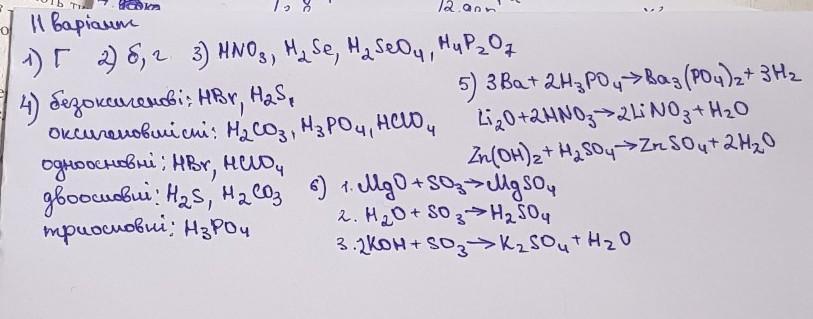 II варіант
1) Г 2) б, г 3) HNO3, H2Se, H2SeO4, H4P2O7
4) безоксигенові: HBr, H2S,
оксигеновмісні: H2CO3, H3PO4, HClO4
одноосновні: HBr, HClO4
двоосновні: H2S, H2CO3
триосновні: H3PO4
5) 3Ba + 2H3PO4 → Ba3(PO4)2 + 3H2
Li2O + 2HNO3 → 2LiNO3 + H2O
Zn(OH)2 + H2SO4 → ZnSO4 + 2H2O
6) 1. MgO + SO3 → MgSO4
2. H2O + SO3 → H2SO4
3. 2KOH + SO3 → K2SO4 + H2O